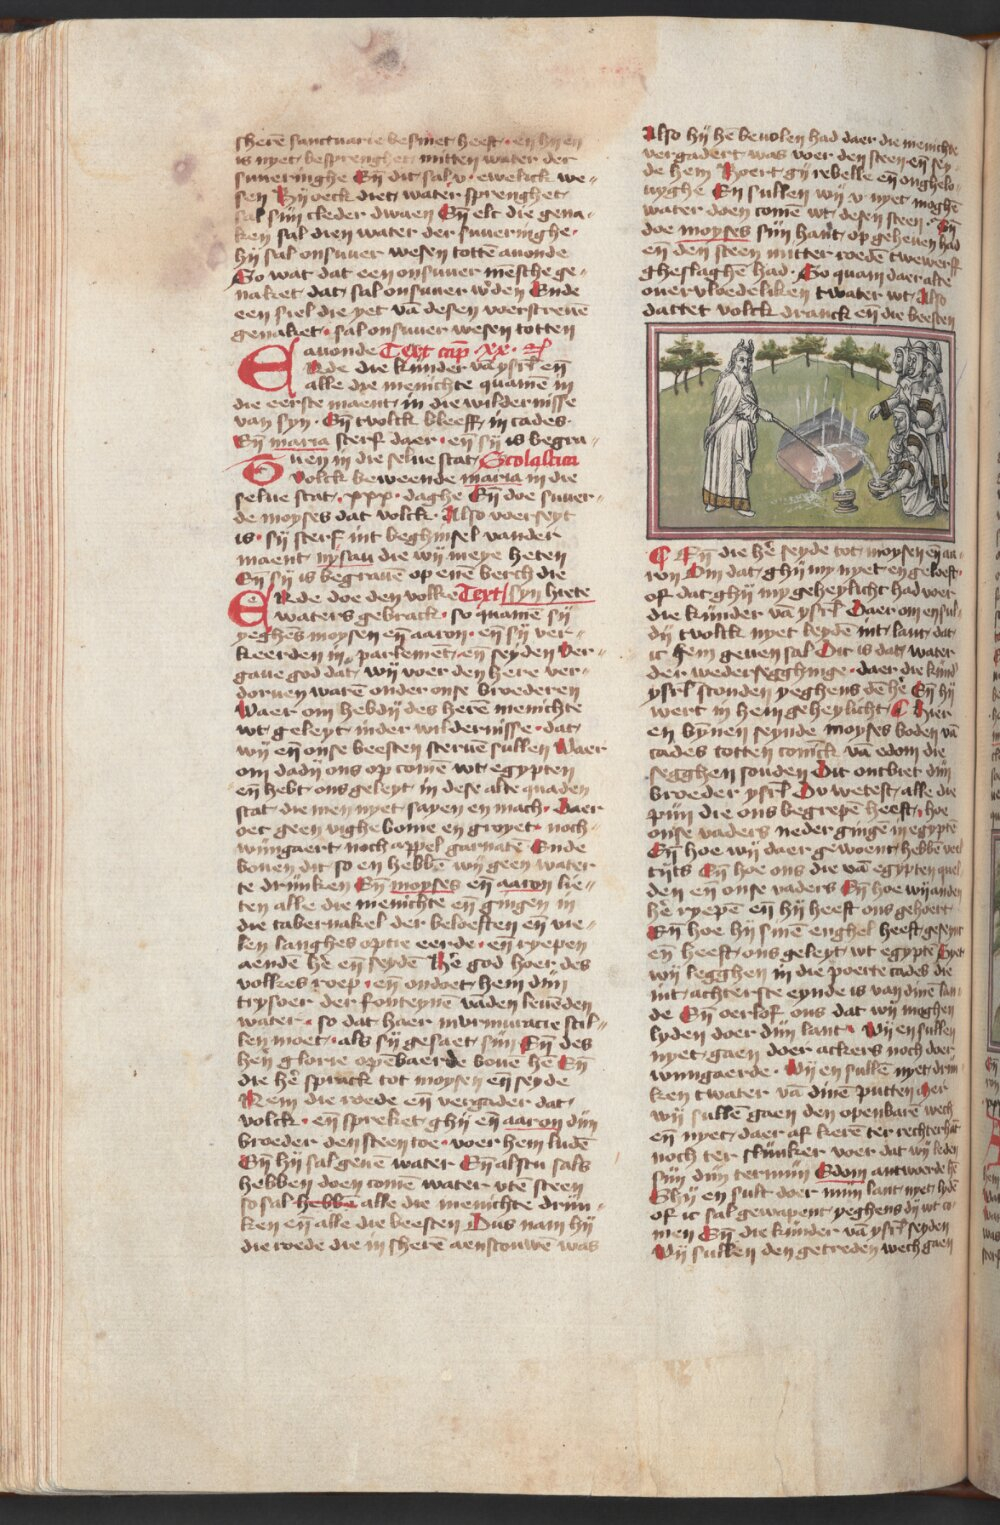 sherē sanctuarie besmet heeft · en hij en
is nyet besprenghet mitten water der
suueringhe Eñ dit sal v · ewelick we-
sen Hij oeck diet water sprenghet
sal sijn cleder dwaen Eñ elc die gena-
ken sal dien water der suueringhe ·
hij sal onsuuer wesen tottē auonde
So wat dat een onsuuer mēsche ge-
naket dat sal onsuuer w'den Ende
een siel die yet vā desen voerstreuē
genaket · sal onsuuer wesen totten
auonde Text cap̄ · xx ·
ERde die kijnder vā ysrl' eñ
alle die menichte quamē in
die eerste maent in die wildernisse
van syn · Eñ tvolck bleeff in cades ·
Eñ maria sterf daer · eñ sij is begra-
uen in die selue stat Scolastica
Tvolck beweende maria in die
selue stat · xxx · daghe Eñ doe suuer-
de moyses dat volck · Also voerseyt
is · sij sterf int beghinsel vander
maent nysau die wij meye heten
Eñ sij is begrauē op enē berch die
ERde doe den volke Text syn hiete
waters gebrack · so quamē sij
yeghēs moysen eñ aaron · eñ sij ver-
keerden in parlemēt · eñ seyden Ver-
gaue god dat wij voer den here ver-
doruen warē onder onse broederen
Waer om hebdij des herē menichte
wt geleyt inder wildernisse · dat
wij eñ onse beesten steruē sullen Waer
om dadij ons op comē wt egypten
eñ hebt ons geleyt in dese alte quaden
stat die men nyet sayen en mach · Daer
oec geen vighe bome en groyet · noch
wijngaert noch appel garnatē Ende
bouen dit so en hebbē wij geen water
te drincken Eñ moyses eñ aaron lie-
ten alle die menichte eñ gingen in
die tabernakel der beloeften eñ vie-
len langhes optie eerde · eñ ryepen
aendē hē' eñ seydē Hē' god hoer des
volkes roep · eñ ondoet hem dijn
trysoer der fonteynē vaden leuēden
water · so dat haer murmuracie stil-
len moet · als sij gesaet sijn Eñ des
herē glorie opēbaerde bouē hē Eñ
die hē' sprack tot moysen eñ seyde
Nem die roede eñ vergader dat
volck · eñ spreket ghij eñ aaron dijn
broeder den steen toe · voer hem ludē
Eñ hij sal geuē water Eñ alstu sals
hebben doen comē water vtē steen
so sal hebbē alle die menichte drin-
ken eñ alle die beesten Dus nam hij
die roede die in sherē aenscouwē was
Also hij hē beuolen had daer die menichte
vergadert was voer den steen eñ sey-
de hem Hoert gij rebelle eñ onghelo-
uyghe En sullen wij v nyet moghē
water doen comē wt desen steen · Eñ
doe moyses sijn hant op geheuen had
eñ den steen mitter roedē twewerff
gheslaghē had · So quam daer alte
ouervloedeliken twater wt Also
dattet volck dranck eñ die beesten
Eñ die hē' seyde tot moysen eñ aa-
ron Om dat ghij my nyet en geloeft
of dat ghij my geheylicht had voer
die kijnder vā ysrl' Daer om en sul-
dij tvolck nyet leydē int lant dat
ic hem geuen sal Dit is dat water
der wedersegghinge · daer die kind'
ysrl' stonden yeghens dē hē' Eñ hij
wert in hem geheylicht Hier
en bynen seynde moyses boden vā
cades totten coninck vā edom die
segghen souden Dit ontbiet dijn
broeder ysrl' Du wetest alle die
pijn die ons begrepē heeft · hoe
onse vaders neder gingē in egyptē
Eñ hoe wij daer gewoent hebbē veel
tijts Eñ hoe ons die vā egypten quel-
den eñ onse vaders Eñ hoe wij anden
hē' ryepē eñ hij heeft ons gehoert
Eñ hoe hij sinē enghel heeft geseynt
eñ heeft ons geleyt wt egyptē Siet
wij legghen in die poerte cades die
int achterste eynde is van dinē lan-
de Eñ oerlof ons dat wij moghen
lyden doer dijn lant · Wij en sullen
nyet gaen doer ackers noch doer
wijngaerde · Wij en sullē nyet drin-
ken twater vā dinē putten Mer
wij sullē gaen den openbarē wech
eñ nyet daer af kerē ter rechterhāt
noch ter slijnker voer dat wij leden
sijn dijn termijn Edom antwoerde hē
Ghij en sult doer mijn lant nyet lydē
of ic sal gewapent yeghens dij wt co-
men Eñ die kijnder vā ysrl' seyden
Wij sullen den getreden wech gaen